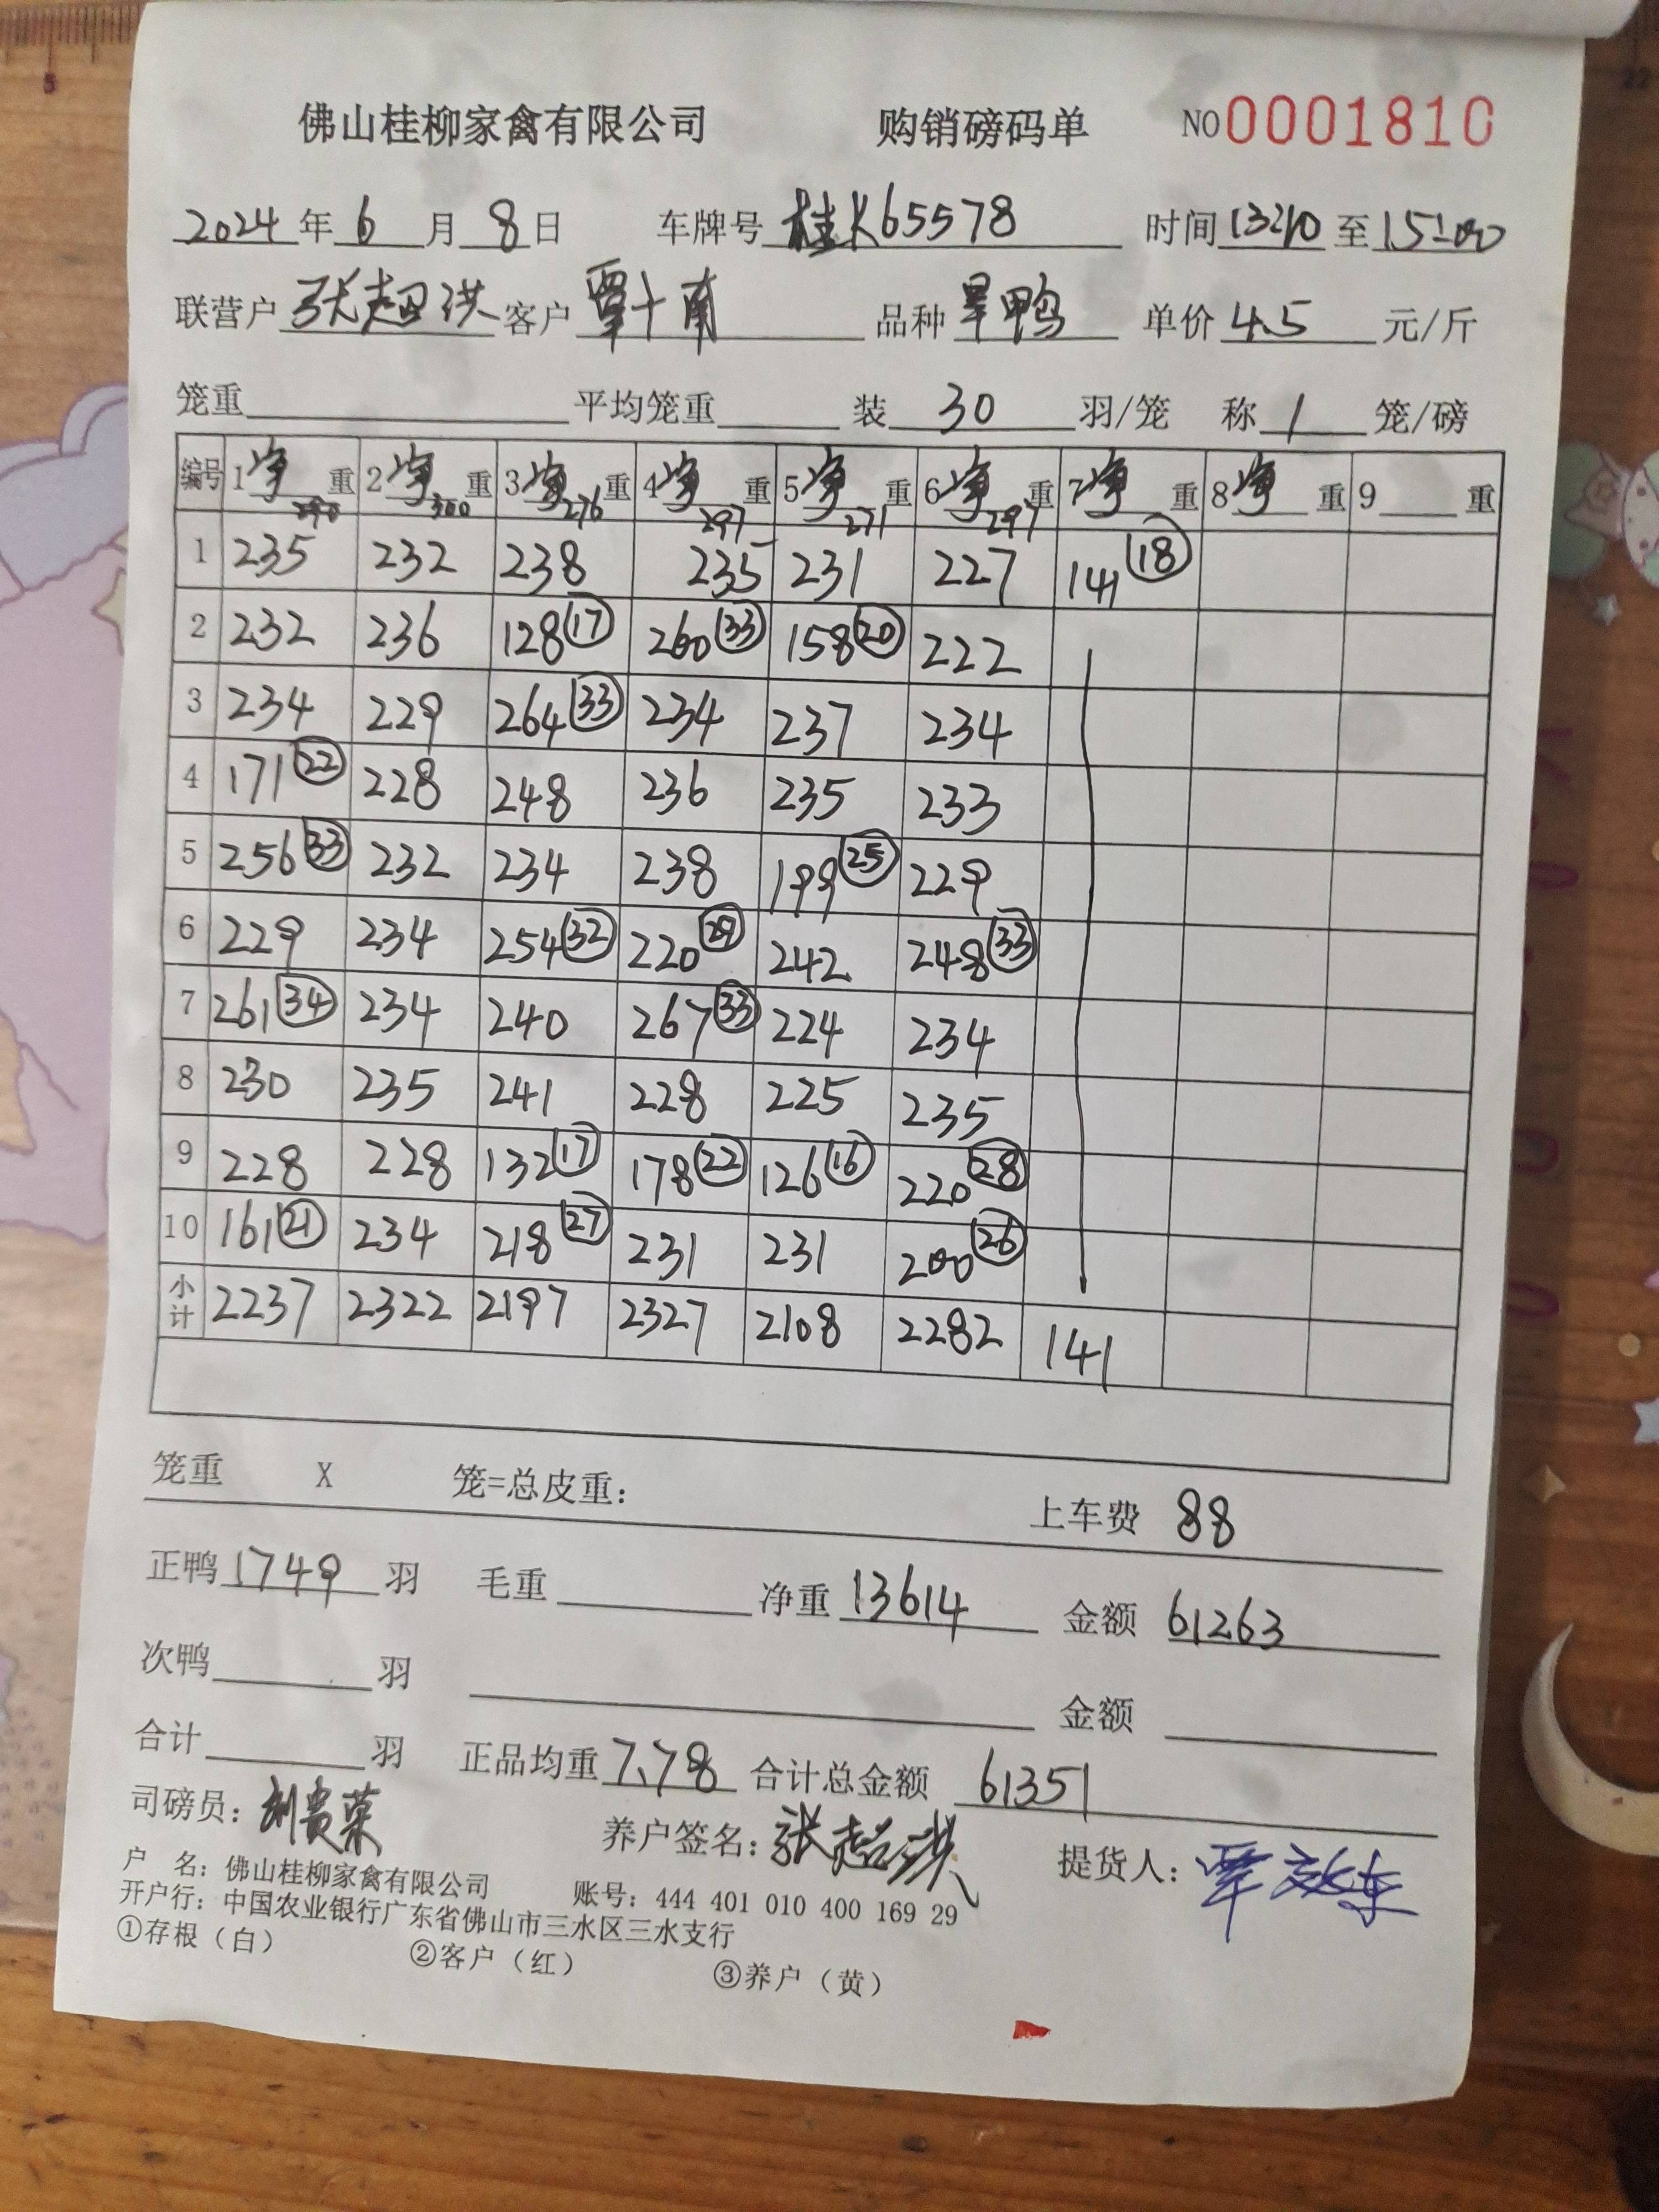 佛山桂柳家禽有限公司 购销磅码单 NO 0001810
2024年6月8日 车牌号 桂K65578 时间 13:40 至 15:00
联营户 张超洪 客户 覃十南 品种 旱鸭 单价 4.5 元/斤
笼重 平均笼重 装 30 羽/笼 称 1 笼/磅
编号 1净重 2净重 3净重 4净重 5净重 6净重 7净重 8净重 9 重
290 300 276 297 271 297
1 235 232 238 235 231 227 141 (18)
2 232 236 128 (17) 260 (33) 158 (20) 222
3 234 229 264 (33) 234 237 234
4 171 (22) 228 248 236 235 233
5 256 (33) 232 234 238 199 (25) 229
6 229 234 254 (32) 220 (29) 242 248 (33)
7 261 (34) 234 240 267 (33) 224 234
8 230 235 241 228 225 235
9 228 228 132 (17) 178 (22) 126 (16) 220 (28)
10 161 (21) 234 218 (27) 231 231 200 (26)
小计 2237 2322 2197 2327 2108 2282 141
笼重 X 笼=总皮重: 上车费 88
正鸭 1749 羽 毛重 净重 13614 金额 61263
次鸭 羽 金额
合计 羽 正品均重 7.78 合计总金额 61351
司磅员: 刘贵荣 养户签名: 张超洪 提货人: 覃
户 名: 佛山桂柳家禽有限公司 账号: 444 401 010 400 169 29
开户行: 中国农业银行广东省佛山市三水区三水支行
①存根(白) ②客户(红) ③养户(黄)